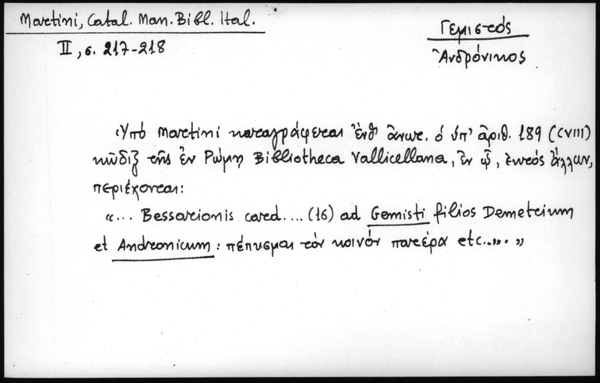 Martini, Catal. Man. Bibl. Ital.
II, σ. 217-218
Γεμιστός
Ἀνδρόνικος
Ὑπὸ Martini καταγράφεται ἔνθ' ἄνωτ. ὁ ὑπ' ἀριθ. 189 (CVIII)
κῶδιξ τῆς ἐν Ρώμῃ Bibliotheca Vallicellana, ἐν ᾧ, ἐκτὸς ἄλλων,
περιέχονται:
«... Bessarionis card.... (16) ad Gemisti filios Demetrium
et Andronicum: πέπυσμαι τὸν κοινὸν πατέρα etc..... »